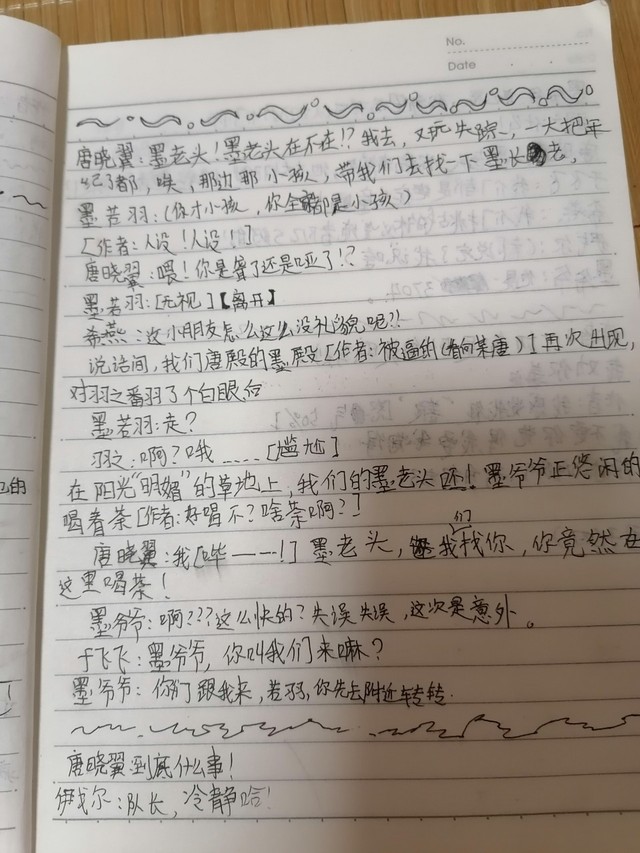 No.
Date
唐晓翼:墨老头!墨老头在不在!?我去,又玩失踪,一大把年
纪了都,咦,那边那小孩,带我们去找一下墨长老,
墨若羽:(你才小孩,你全都是小孩)
[作者:人设!人设!]
唐晓翼:喂!你是聋了还是哑了!?
墨若羽:[无视]【离开】
希燕:这小朋友怎么这么没礼貌呢?!
说话间,我们唐殿的墨殿[作者:被逼的(看向某唐)]再次出现,
对羽之番羽了个白眼后
墨若羽:走?
羽之:啊?哦....[尴尬]
在阳光“明媚”的草地上,我们的墨老头呸!墨爷爷正悠闲的
喝着茶[作者:好喝不?啥茶啊?]
唐晓翼:我[哔——!]墨老头,我们找你,你竟然在
这里喝茶!
墨爷爷:啊???这么快的?失误失误,这次是意外。
于飞飞:墨爷爷,你叫我们来嘛?
墨爷爷:你们跟我来,若羽,你先去附近转转.
唐晓翼到底什么事!
伊戈尔:队长,冷静哈!